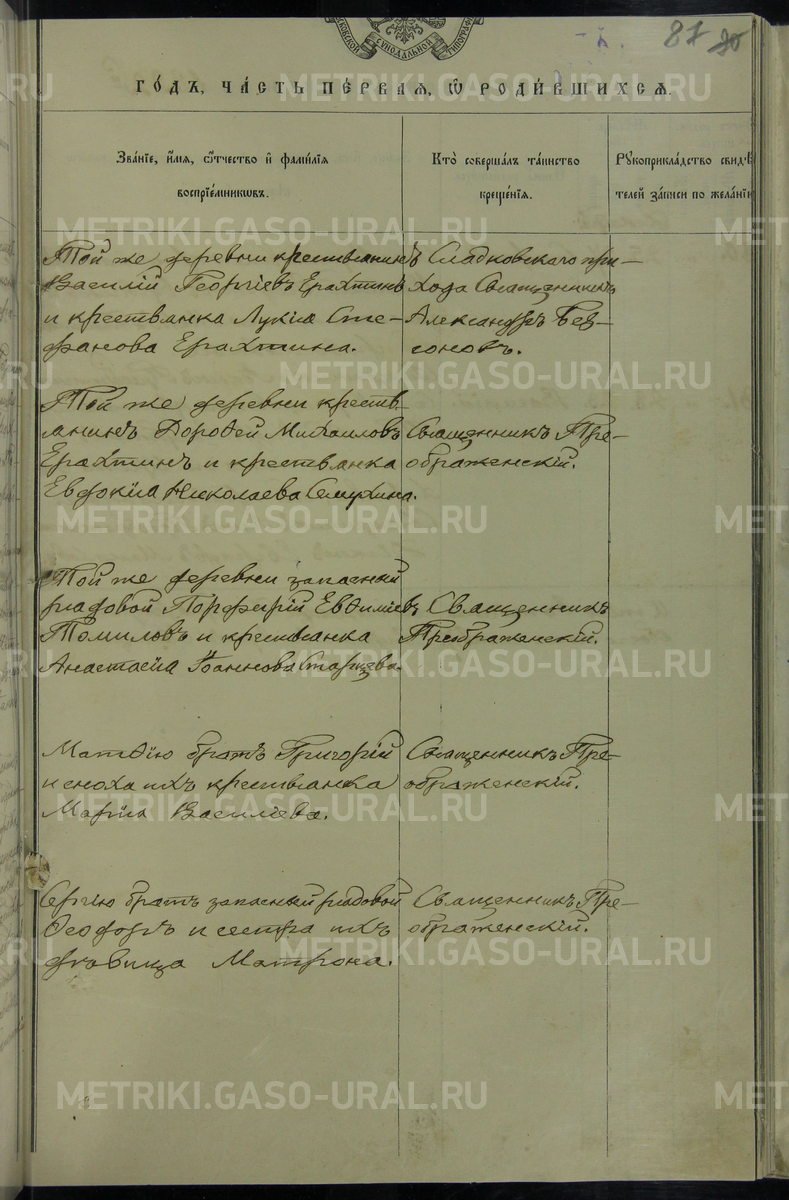 МОСКОВСКОЙ СѴНОДАЛЬНОЙ ТИПОГРАФІИ
87
METRIKI.GASO-URAL.RU
ГО́ДЪ, ЧА́СТЬ ПЕ́РВАЯ, Ѿ РОДИ́ВШИХСЯ.
Зва́нїе, и҆́мя, ѻ҆́тчество и҆ фами́лїя
воспрїе́мникѡвъ.
Кто̀ соверша́лъ та́инство
креще́нїя.
Рꙋкоприкла́дство свидѣ́-
телей за́писи по жела́нїю
Той же деревни крестьянинъ
Василій Георгіевъ Ерахтинъ
и крестьянка Лукія Сте-
фанова Ерахтина.
Сладковскаго при-
хода Священникъ
Александръ Без-
соновъ.
Той же деревни кресть-
янинъ Дорофей Михаиловъ
Ерахтинъ и крестьянка
Евдокія Николаева Семухина.
Священникъ Пре-
ображенскій.
Той же деревни запасный
рядовой Порфирій Евѳиміевъ
Томиловъ и крестьянка
Анастасія Іоаннова Старцева.
Священникъ
Преображенскій.
Матѳію братъ Григорій
и сноха ихъ крестьянка
Марія Василіева.
Священникъ Пре-
ображенскій.
Сергію братъ запасный рядовой
Ѳеодоръ и сестра ихъ
дѣвица Матрона.
Священникъ Пре-
ображенскій.